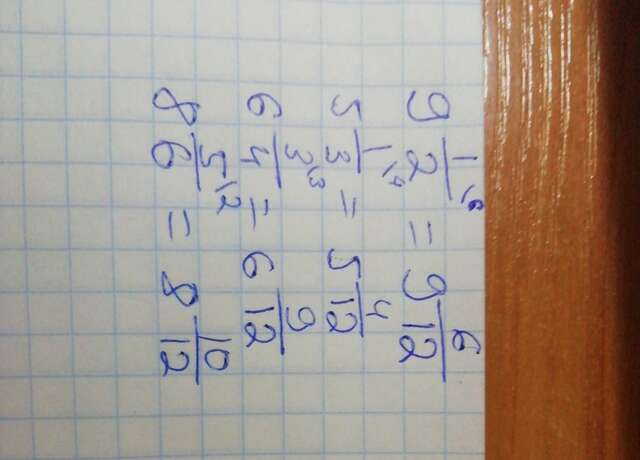 9 1/2 \6 = 9 6/12
5 1/3 \4 = 5 4/12
6 3/4 \3 = 6 9/12
8 5/6 \2 = 8 10/12